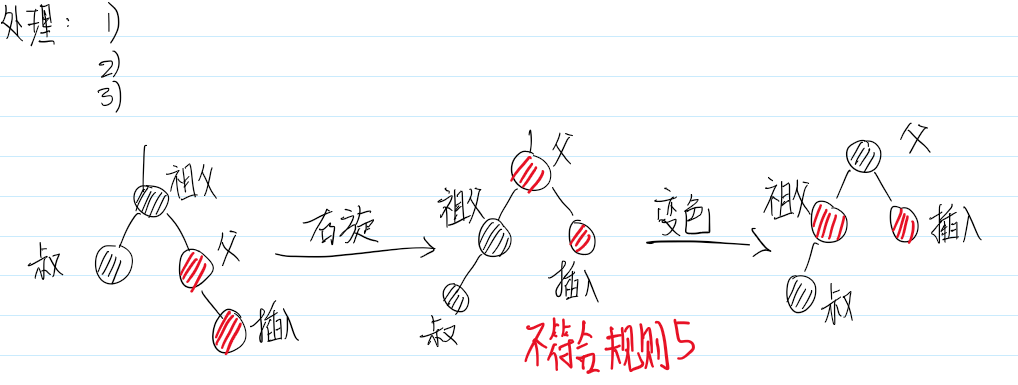 处理: 1)
2)
3)
祖父
叔
父
插入
右旋
父
祖父
插入
叔
不符合规则5
变色
父
祖父
插入
叔